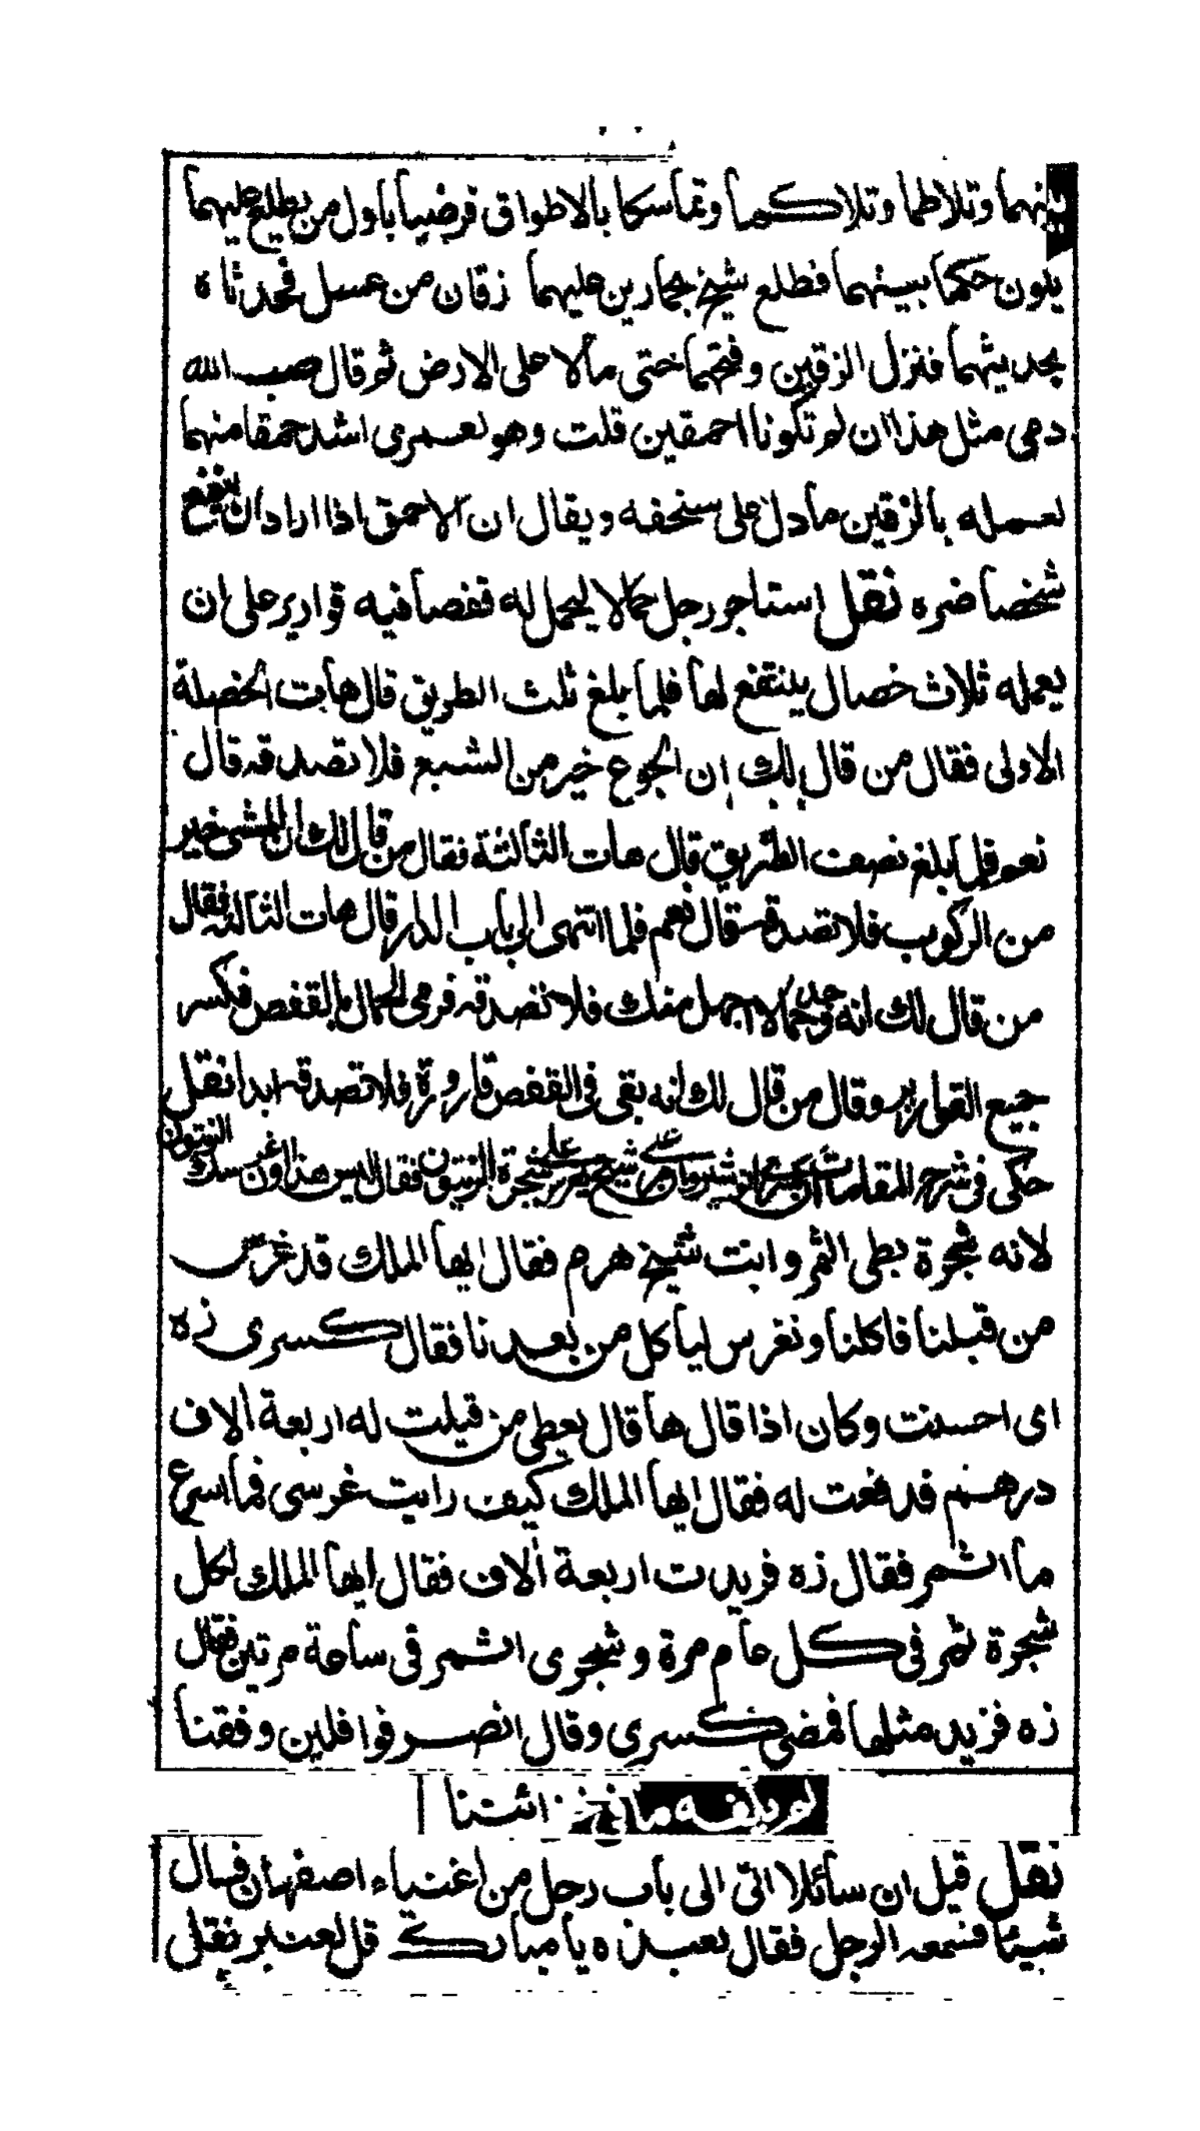 بينهما وتلاطما وتلاكما وتماسكا بالاطواق فرضيا باول من يطلع عليهما
يكون حكما بينهما فطلع شيخ بحمارين عليهما زقان من عسل فحدثاه
بحديثهما فنزل الزقين وفتحهما حتى سالا على الارض ثم قال صب الله
دمى مثل هذا ان لم تكونا احمقين قلت وهو لعمرى اشد حمقا منهما
لعمله بالزقين ما دل على سخفه ويقال ان الاحمق اذا اراد ان ينفع
شخصا ضره نقل استاجر رجل حمالا ليحمل له قفصا فيه قوارير على ان
يعمله ثلاث خصال ينتفع بها فلما بلغ ثلث الطريق قال هات الخصلة
الاولى فقال من قال لك ان الجوع خير من الشبع فلا تصدقه قال
نعم فلما بلغ نصف الطريق قال هات الثالثة فقال من قال لك ان المشى خير
من الركوب فلا تصدقه قال نعم فلما انتهى الى باب الدار قال هات الثالثه فقال
من قال لك انه وجد حمالا اجهل منك فلا تصدقه فرمى الحمال بالقفص فكسر
جميع القوارير وقال من قال لك انه بقى فى القفص قارورة فلا تصدقه ابدا نقل
حكى فى شرح المقامات ان كسرى انوشيروان مر على شيخ يغرس شجرة الزيتون فقال ليس هذا اوان غرسك الزيتون
لانه شجرة بطى الثمر وانت شيخ هرم فقال ايها الملك قد غرس
من قبلنا فاكلنا ونغرس لياكل من بعدنا فقال كسرى زه
اى احسنت وكان اذا قال ها قال يعطى من قيلت له اربعة الاف
درهم فدفعت له فقال ايها الملك كيف رايت غرسى فما اسرع
ما اثمر فقال زه فزيدت اربعة الاف فقال ايها الملك لكل
شجرة ثمر فى كل عام مرة وشجرى اثمر فى ساعة مرتين فقال
زه فزيد مثلها فمضى كسرى وقال انصرفوا فلين وفقنا
لم يكفه ما فى خزائننا
نقل قيل ان سائلا اتى الى باب رجل من اغنياء اصفهان فسال
شيئا فسمعه الرجل فقال لعبده يا مبارك قل لعنبر نقل